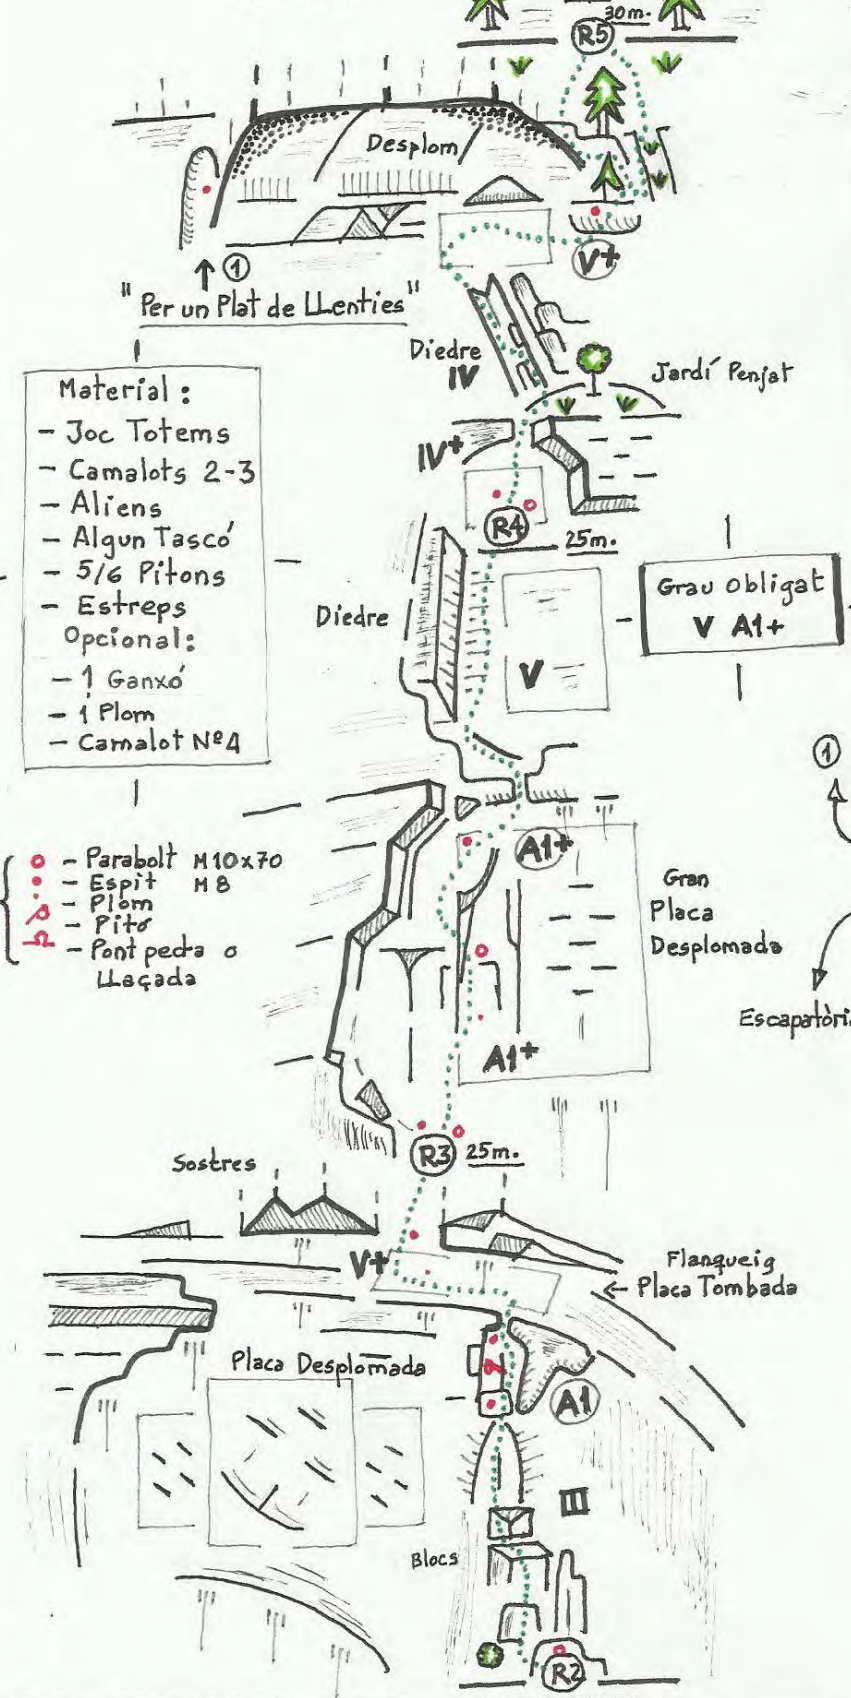 30m.
R5
Desplom
V+
1
"Per un Plat de LLenties"
Diedre
IV
Jardí Penjat
Material:
- Joc Totems
- Camalots 2-3
- Aliens
- Algun Tascó
- 5/6 Pitons
- Estreps
Opcional:
- 1 Ganxó
- 1 Plom
- Camalot Nº4
IV+
R4
25m.
Grau Obligat
V A1+
Diedre
V
1
A1+
- Parabolt M10x70
- Espit M8
- Plom
- Pitó
- Pont pedra o
LLaçada
Gran
Placa
Desplomada
Escapatòri
A1+
R3 25m.
Sostres
V+
Flanqueig
← Placa Tombada
Placa Desplomada
A1
III
Blocs
R2